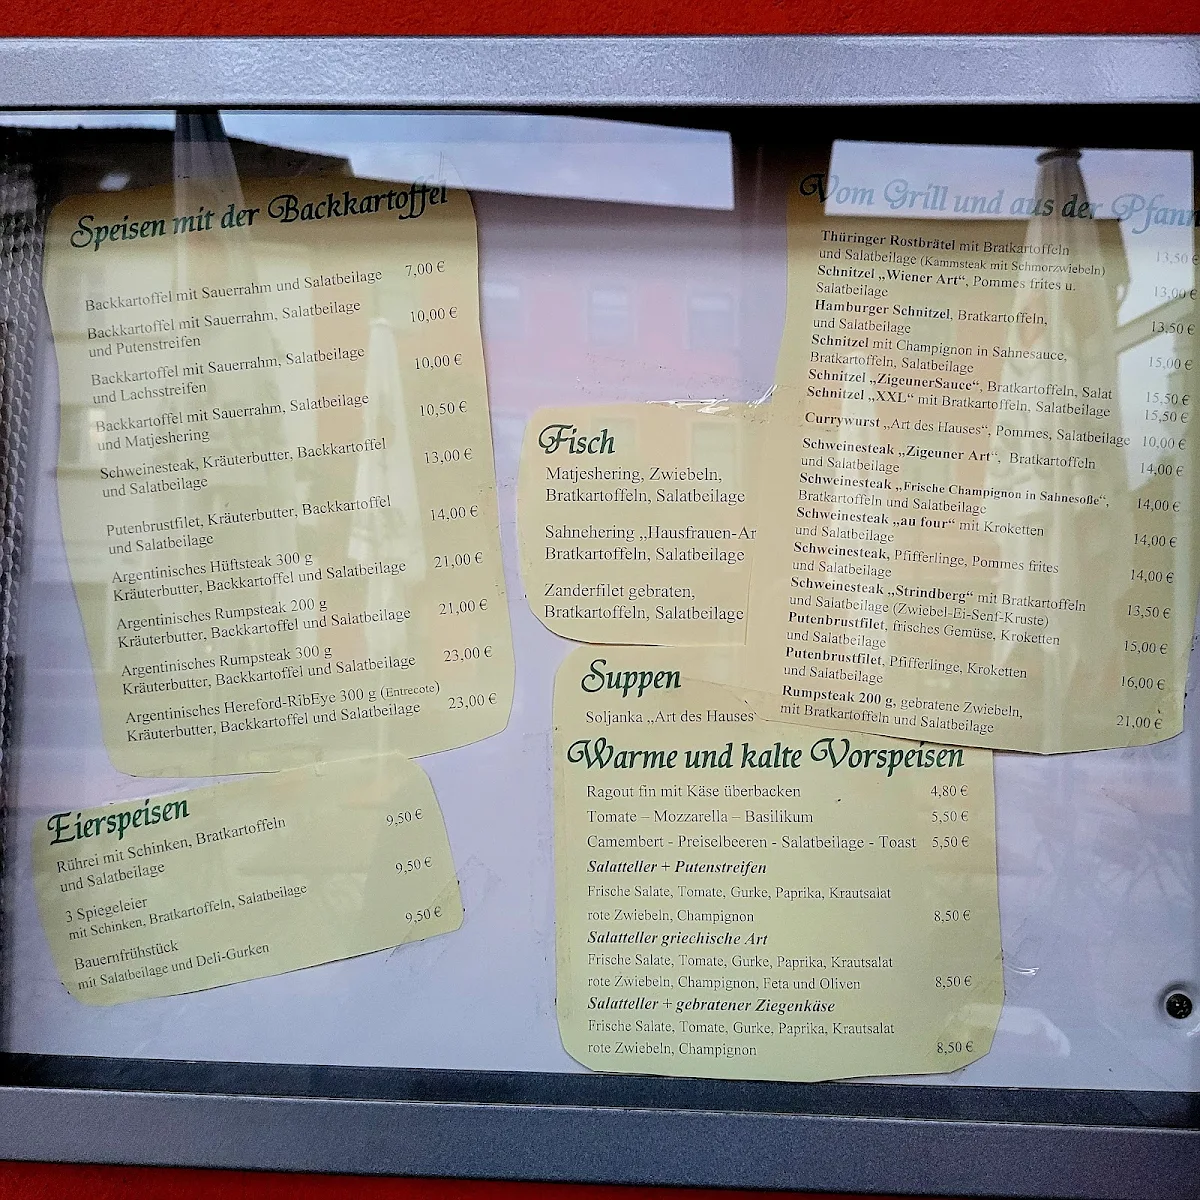 Speisen mit der Backkartoffel
Backkartoffel mit Sauerrahm und Salatbeilage 7,00 €
Backkartoffel mit Sauerrahm, Salatbeilage 10,00 €
und Putenstreifen
Backkartoffel mit Sauerrahm, Salatbeilage 10,00 €
und Lachsstreifen
Backkartoffel mit Sauerrahm, Salatbeilage 10,50 €
und Matjeshering
Schweinesteak, Kräuterbutter, Backkartoffel 13,00 €
und Salatbeilage
Putenbrustfilet, Kräuterbutter, Backkartoffel 14,00 €
und Salatbeilage
Argentinisches Hüftsteak 300 g
Kräuterbutter, Backkartoffel und Salatbeilage 21,00 €
Argentinisches Rumpsteak 200 g
Kräuterbutter, Backkartoffel und Salatbeilage 21,00 €
Argentinisches Rumpsteak 300 g
Kräuterbutter, Backkartoffel und Salatbeilage 23,00 €
Argentinisches Hereford-RibEye 300 g (Entrecote)
Kräuterbutter, Backkartoffel und Salatbeilage 23,00 €
Eierspeisen
Rührei mit Schinken, Bratkartoffeln 9,50 €
und Salatbeilage
3 Spiegeleier 9,50 €
mit Schinken, Bratkartoffeln, Salatbeilage
Bauernfrühstück 9,50 €
mit Salatbeilage und Deli-Gurken
Fisch
Matjeshering, Zwiebeln,
Bratkartoffeln, Salatbeilage
Sahnehering „Hausfrauen-Ar
Bratkartoffeln, Salatbeilage
Zanderfilet gebraten,
Bratkartoffeln, Salatbeilage
Suppen
Soljanka „Art des Hauses“
Warme und kalte Vorspeisen
Ragout fin mit Käse überbacken 4,80 €
Tomate – Mozzarella – Basilikum 5,50 €
Camembert - Preiselbeeren - Salatbeilage - Toast 5,50 €
Salatteller + Putenstreifen
Frische Salate, Tomate, Gurke, Paprika, Krautsalat
rote Zwiebeln, Champignon 8,50 €
Salatteller griechische Art
Frische Salate, Tomate, Gurke, Paprika, Krautsalat
rote Zwiebeln, Champignon, Feta und Oliven 8,50 €
Salatteller + gebratener Ziegenkäse
Frische Salate, Tomate, Gurke, Paprika, Krautsalat
rote Zwiebeln, Champignon 8,50 €
Vom Grill und aus der Pfann
Thüringer Rostbrätel mit Bratkartoffeln 13,50 €
und Salatbeilage (Kammsteak mit Schmorzwiebeln)
Schnitzel „Wiener Art“, Pommes frites u. 13,00 €
Salatbeilage
Hamburger Schnitzel, Bratkartoffeln, 13,50 €
und Salatbeilage
Schnitzel mit Champignon in Sahnesauce, 15,00 €
Bratkartoffeln, Salatbeilage
Schnitzel „ZigeunerSauce“, Bratkartoffeln, Salat 15,50 €
Schnitzel „XXL“ mit Bratkartoffeln, Salatbeilage 15,50 €
Currywurst „Art des Hauses“, Pommes, Salatbeilage 10,00 €
Schweinesteak „Zigeuner Art“, Bratkartoffeln 14,00 €
und Salatbeilage
Schweinesteak „Frische Champignon in Sahnesoße“, 14,00 €
Bratkartoffeln und Salatbeilage
Schweinesteak „au four“ mit Kroketten 14,00 €
und Salatbeilage
Schweinesteak, Pfifferlinge, Pommes frites 14,00 €
und Salatbeilage
Schweinesteak „Strindberg“ mit Bratkartoffeln 13,50 €
und Salatbeilage (Zwiebel-Ei-Senf-Kruste)
Putenbrustfilet, frisches Gemüse, Kroketten 15,00 €
und Salatbeilage
Putenbrustfilet, Pfifferlinge, Kroketten 16,00 €
und Salatbeilage
Rumpsteak 200 g, gebratene Zwiebeln, 21,00 €
mit Bratkartoffeln und Salatbeilage